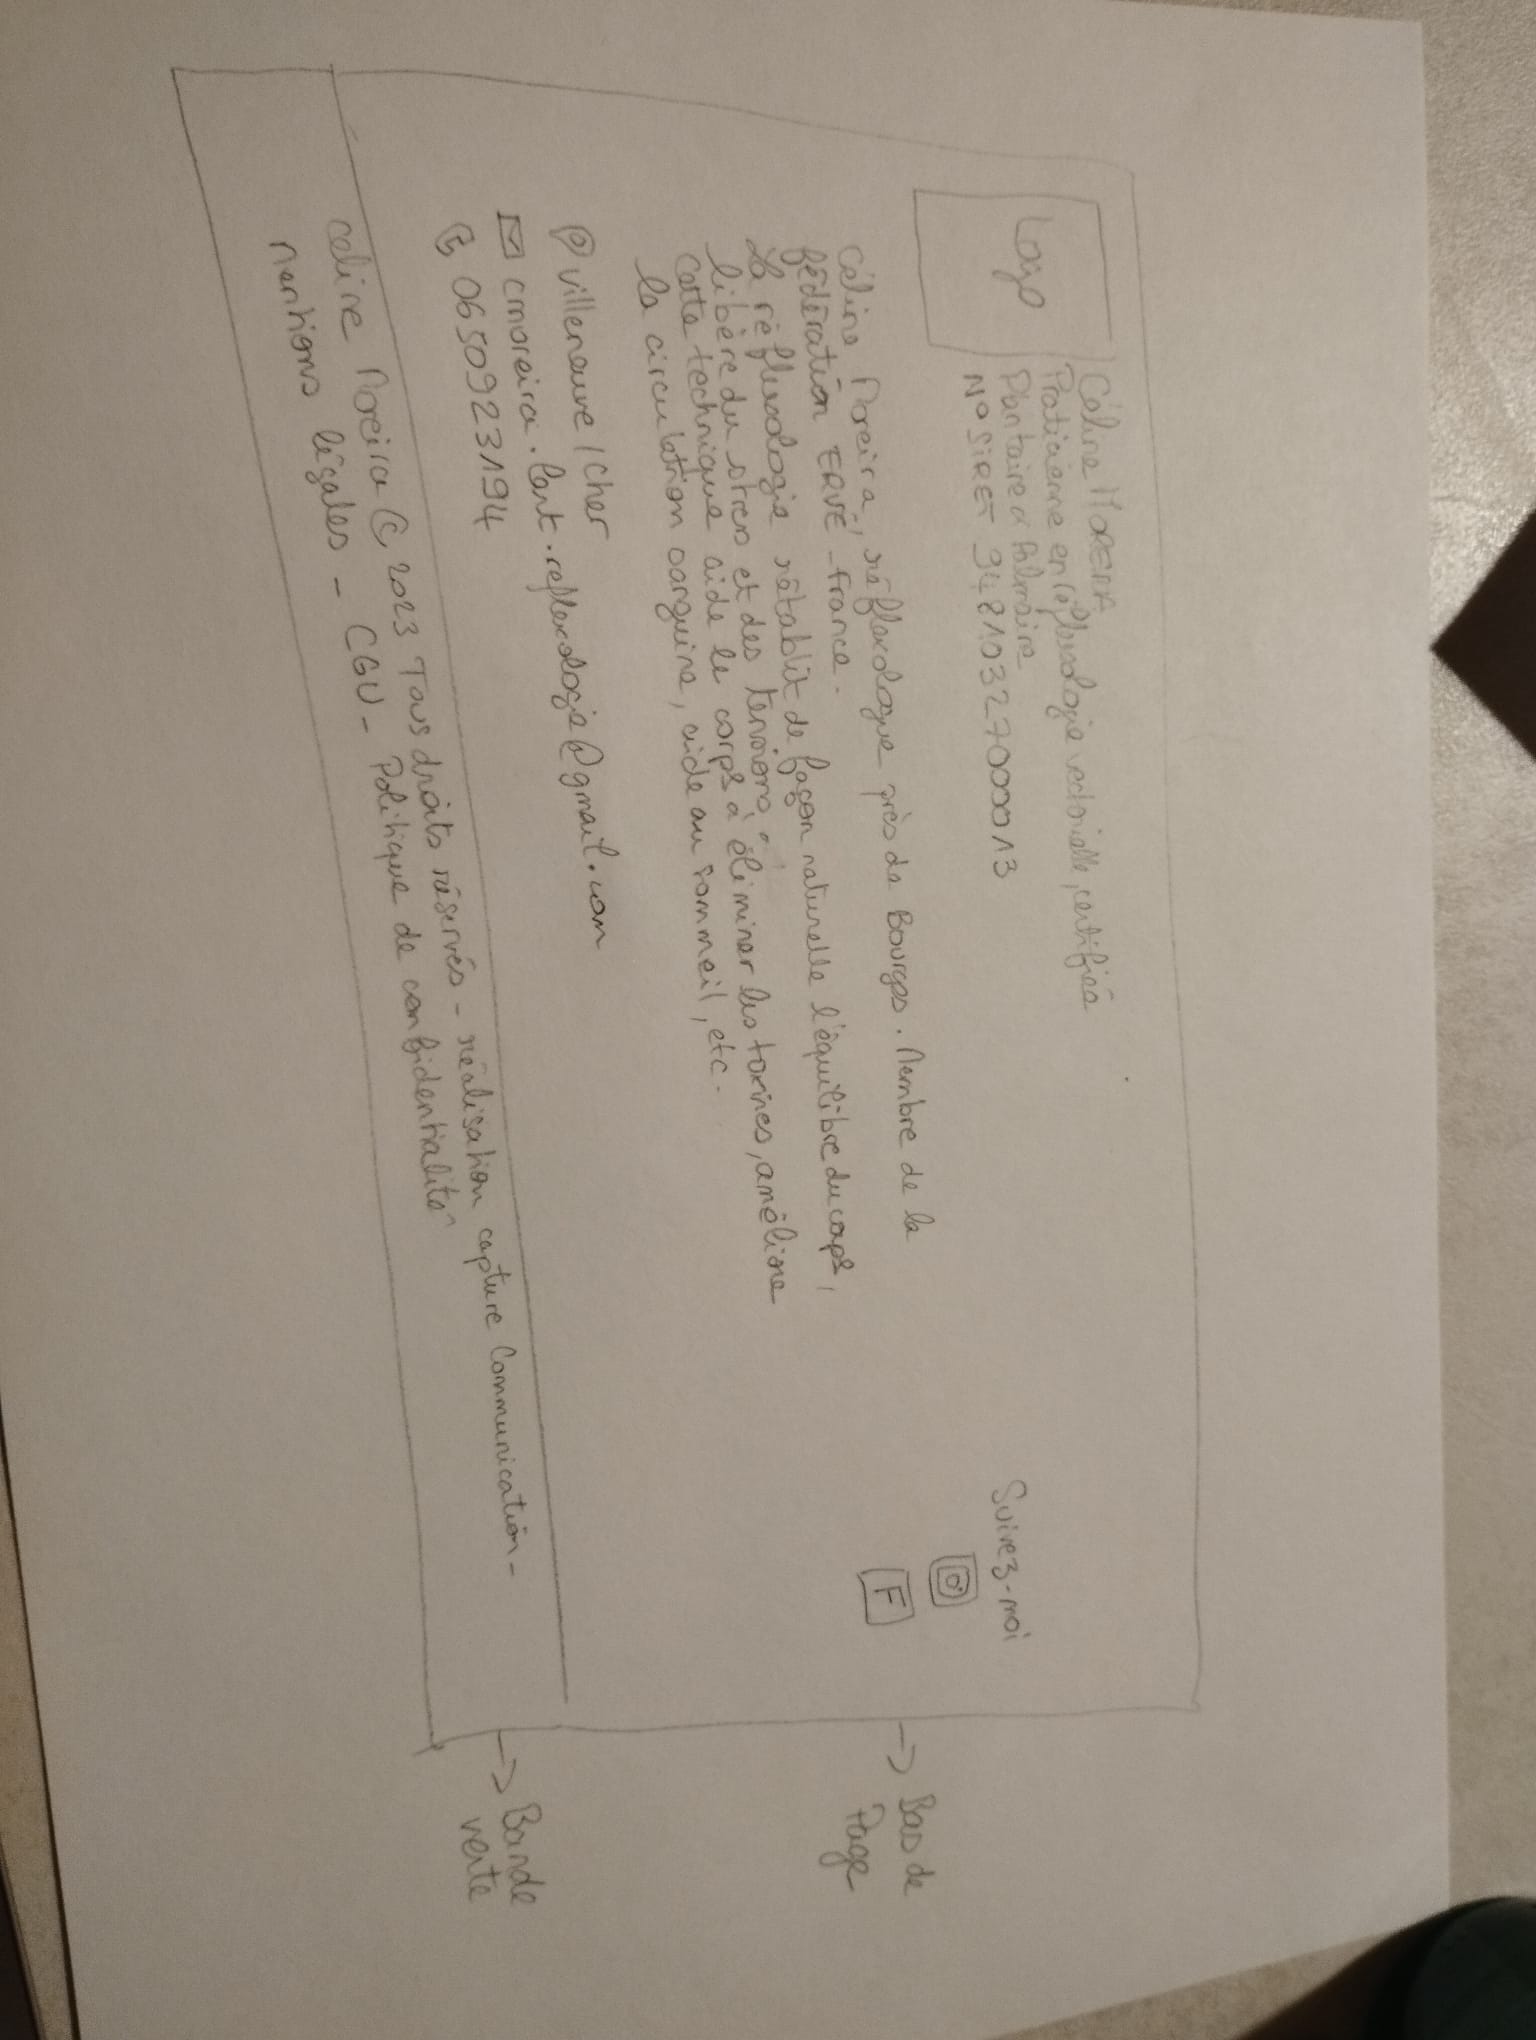 Logo
Céline MOREIRA
Praticienne en réflexologie vectorielle, certifiée
Plantaire & Palmaire
N° SIRET 94810327000013
Suivez-moi
F
Céline Moreira, réflexologue près de Bourges. Membre de la
fédération ERVE - France.
La réflexologie rétablit de façon naturelle l'équilibre du corps,
libère du stress et des tensions.
Cette technique aide le corps à éliminer les toxines, améliore
la circulation sanguine, aide au sommeil, etc.
Villeneuve / Cher
cmoreira.lart.reflexologie@gmail.com
0650923194
Celine Moreira © 2023 Tous droits réservés - réalisation capture Communication -
Mentions légales - CGU - Politique de confidentialité
→ Bas de
Page
→ Bande
verte